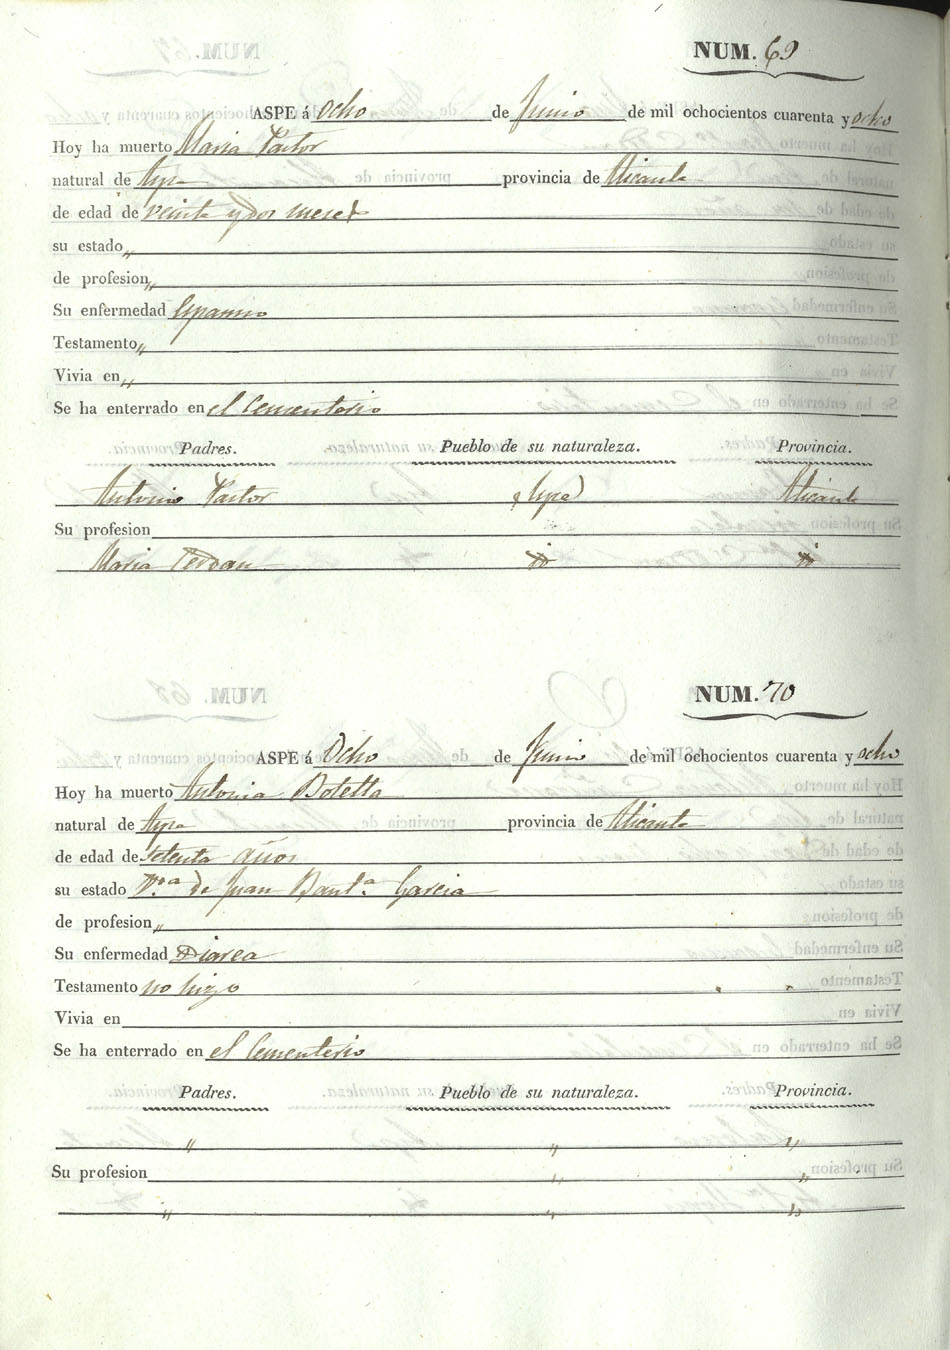 NUM. 69
ASPE á Ocho de Junio de mil ochocientos cuarenta y ocho
Hoy ha muerto Maria Pastor
natural de Aspe provincia de Alicante
de edad de veinte y dos meses
su estado „
de profesion „
Su enfermedad Espasmo
Testamento „
Vivia en „
Se ha enterrado en el Cementerio
Padres. Pueblo de su naturaleza. Provincia.
Antonio Pastor Aspe Alicante
Su profesion
Maria Cerdan id id
NUM. 70
ASPE á Ocho de Junio de mil ochocientos cuarenta y ocho
Hoy ha muerto Antonia Botella
natural de Aspe provincia de Alicante
de edad de setenta años
su estado V.da de Juan Baut.a Garcia
de profesion „
Su enfermedad Diarea
Testamento no hizo
Vivia en
Se ha enterrado en el Cementerio
Padres. Pueblo de su naturaleza. Provincia.
„ „ „
Su profesion „ „
„ „ „